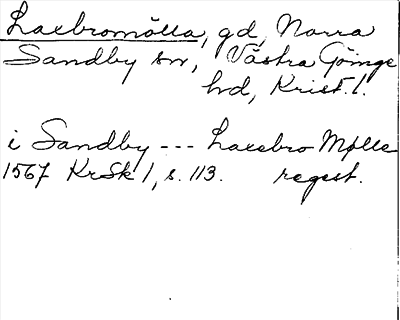 Laxbromölla, gd, Norra
Sandby sn, Västra Göinge
hd, Krist. l.
i Sandby --- Laxebro Mølle
1567 KrSk 1, s. 113. regest.